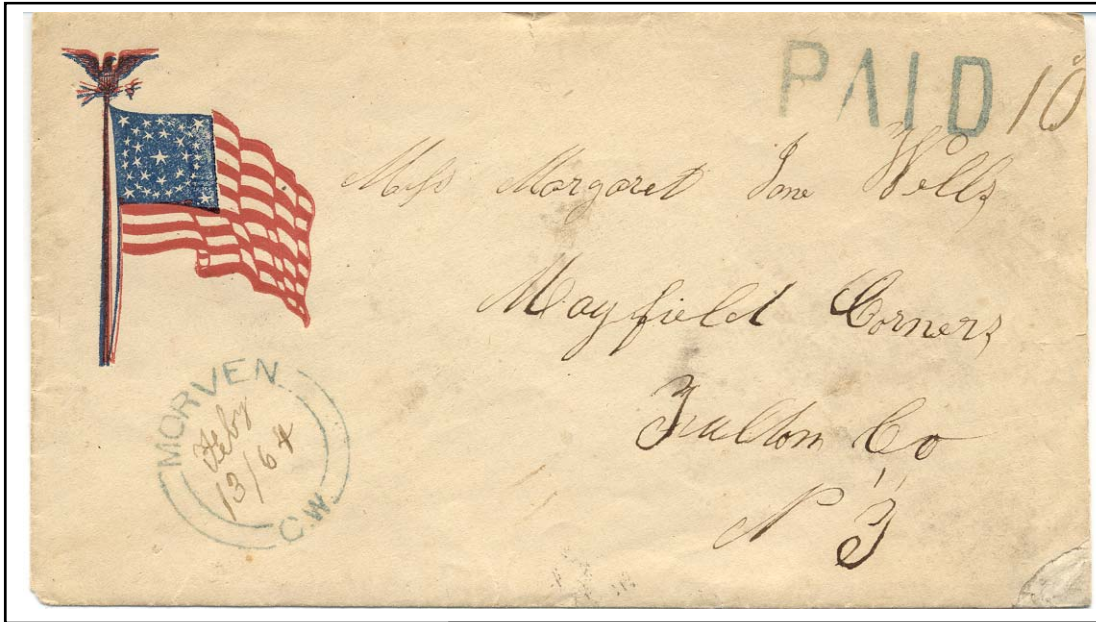 PAID 10
Miss Margaret Jane Wells
Mayfield Corners
Fulton Co
N Y
MORVEN
Feby
13/64
C.W